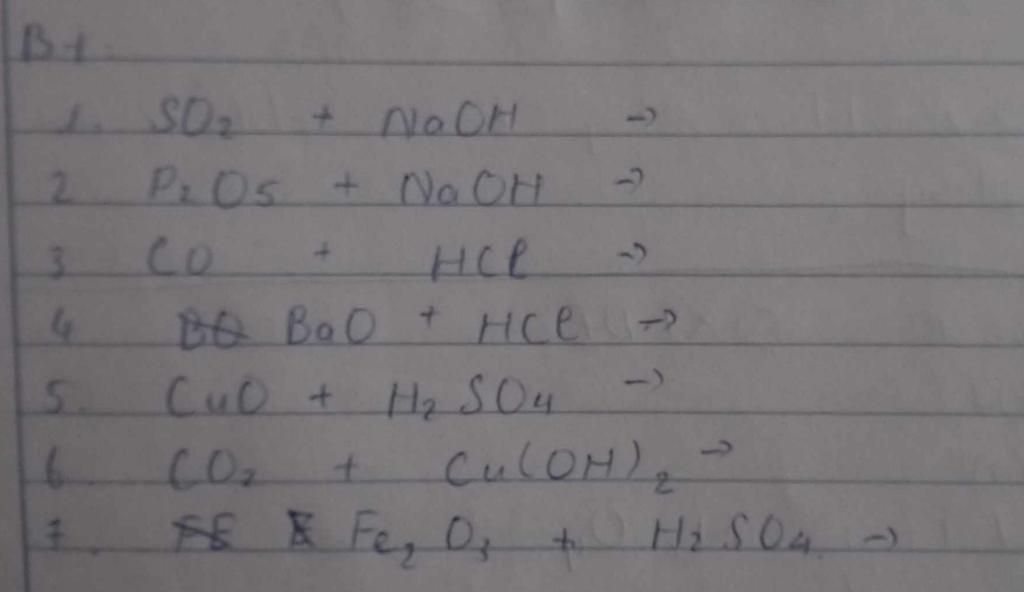 B1.
1. SO₂ + NaOH →
2 P₂O5 + NaOH →
3 CO + HCl →
4 BaO + HCl →
5. CuO + H₂SO4 →
6 CO₂ + Cu(OH)₂ →
7. Fe₂O₃ + H₂SO4 →